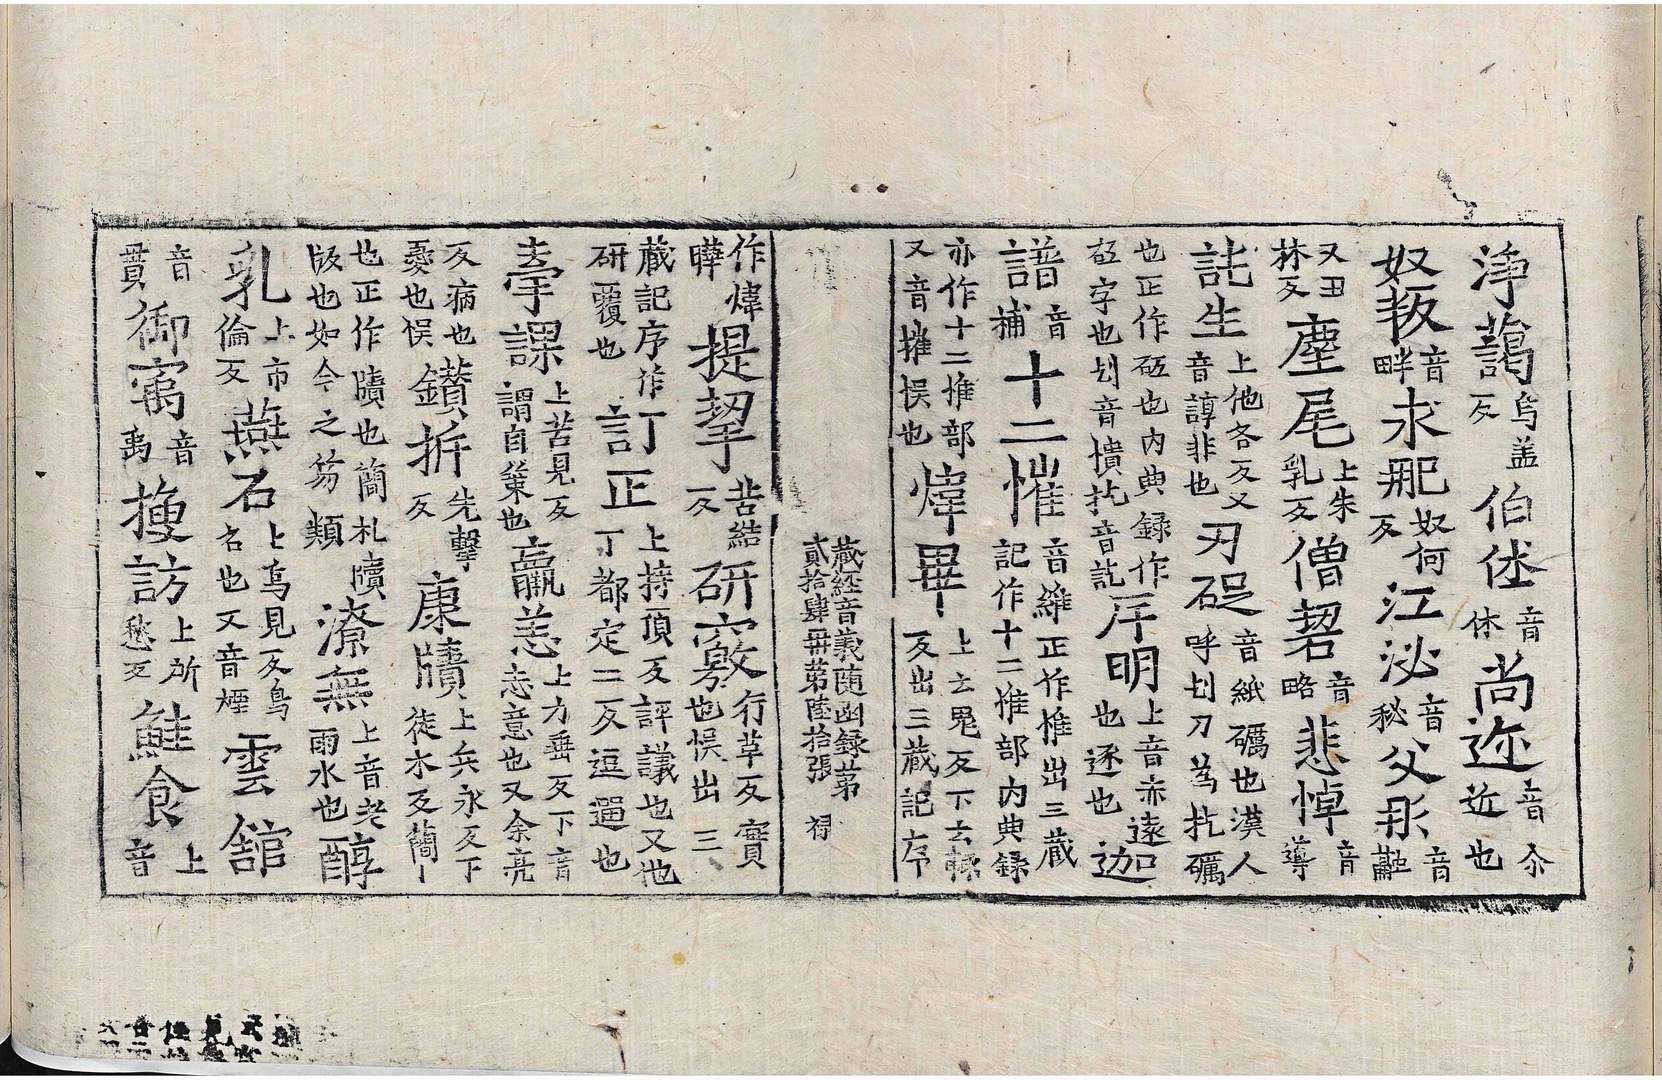 淨藹烏盖反伯㐲音休尚迩音尒近也
奴叛音畔求那奴何反江泌音秘父彤音
又丑林反塵尾上朱乳反僧䂮音略悲悼音導
託生上他各反又音諄非也刃砓音紙礪也漢人呼刬刃為扻礪
也正作砥也内典録作砓字也刬音憒扻音訨序明上音赤遠也逐也迦
譜音捕十二㨤音維正作惟出三藏記作十二惟部内典錄
亦作十二推部又音摧悮也煒曅上云鬼反下云輒反出三藏記序
藏経音義随函録第貳拾肆冊第陸拾張 祷
作煒曄提挈苦結反研覈行革反實也悮出三
藏記序作研覆也訂正上持頂反評議也又他丁都定二反逗遛也
夀課上苦見反謂自策也羸恙上力垂反下音恙意也又余亮
反病也憂也悮鑚㭊先擊反康牘上兵永反下徒木反簡
也正作牘也簡札牘版也如今之笏類潦無上音老雨水也醇
乳上市倫反燕石上烏見反鳥名也又音煙雲舘
音貫御㝢音禹搜訪上所愁反鮭食上音